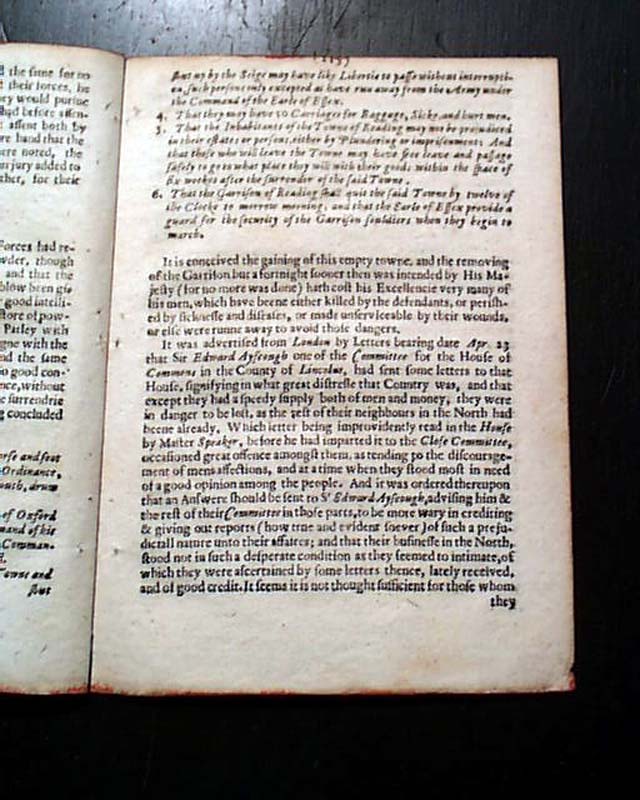 the same for no
their forces, he
they would pursue
had before assen-
assent both by
re hand that the
were noted, the
jury added to
ther, for their
Forces had re-
wder, though
and that the
blow been gi
good intelli-
store of pow-
Parley with
gne with the
nd the same
so good con-
nce, without
e surrendrie
g concluded
orse and foot
Ordinance,
outh, drum
of Oxford
mand of his
Comman-
Towne and
shut
shut up by the Seige may have like Libertie to passe without interrupti-
on, such persons only excepted as have run away from the Army under
the Command of the Earle of Essex.
4. That they may have 50 Carriages for Baggage, Sicke, and hurt men.
5. That the Inhabitants of the Towne of Reading may not be prejudiced
in their estates or persons, either by Plundering or imprisonment: And
that those who will leave the Towne may have free leave and passage
safely to go to what place they will with their goods within the space of
six weekes after the surrender of the said Towne.
6. That the Garrison of Reading shall quit the said Towne by twelve of
the Clocke to morrow morning, and that the Earle of Essex provide a
guard for the security of the Garrison souldiers when they begin to
march.
It is conceived the gaining of this empty towne, and the removing
of the Garrison but a fortnight sooner then was intended by His Ma-
jesty (for no more was done) hath cost his Excellencie very many of
his men, which have beene either killed by the defendants, or perish-
ed by sicknesse and diseases, or made unserviceable by their wounds,
or else were runne away to avoid those dangers.
It was advertised from London by Letters bearing date Apr. 23
that Sir Edward Ayscough one of the Committee for the House of
Commons in the County of Lincolne, had sent some letters to that
House, signifying in what great distresse that Country was, and that
except they had a speedy supply both of men and money, they were
in danger to be lost, as the rest of their neighbours in the North had
beene already. Which letter being improvidently read in the House
by Master Speaker, before he had imparted it to the Close Committee,
occasioned great offence amongst them, as tending to the discourage-
ment of mens affections, and at a time when they stood most in need
of a good opinion among the people. And it was ordered thereupon
that an Answere should be sent to Sr Edward Ayscough, advising him &
the rest of their Committee in those parts, to be more wary in crediting
& giving out reports (how true and evident soever) of such a preju-
diciall nature unto their affaires; and that their businesse in the North,
stood not in such a desperate condition as they seemed to intimate, of
which they were ascertained by some letters thence, lately received,
and of good credit. It seems it is not thought sufficient for those whom
they